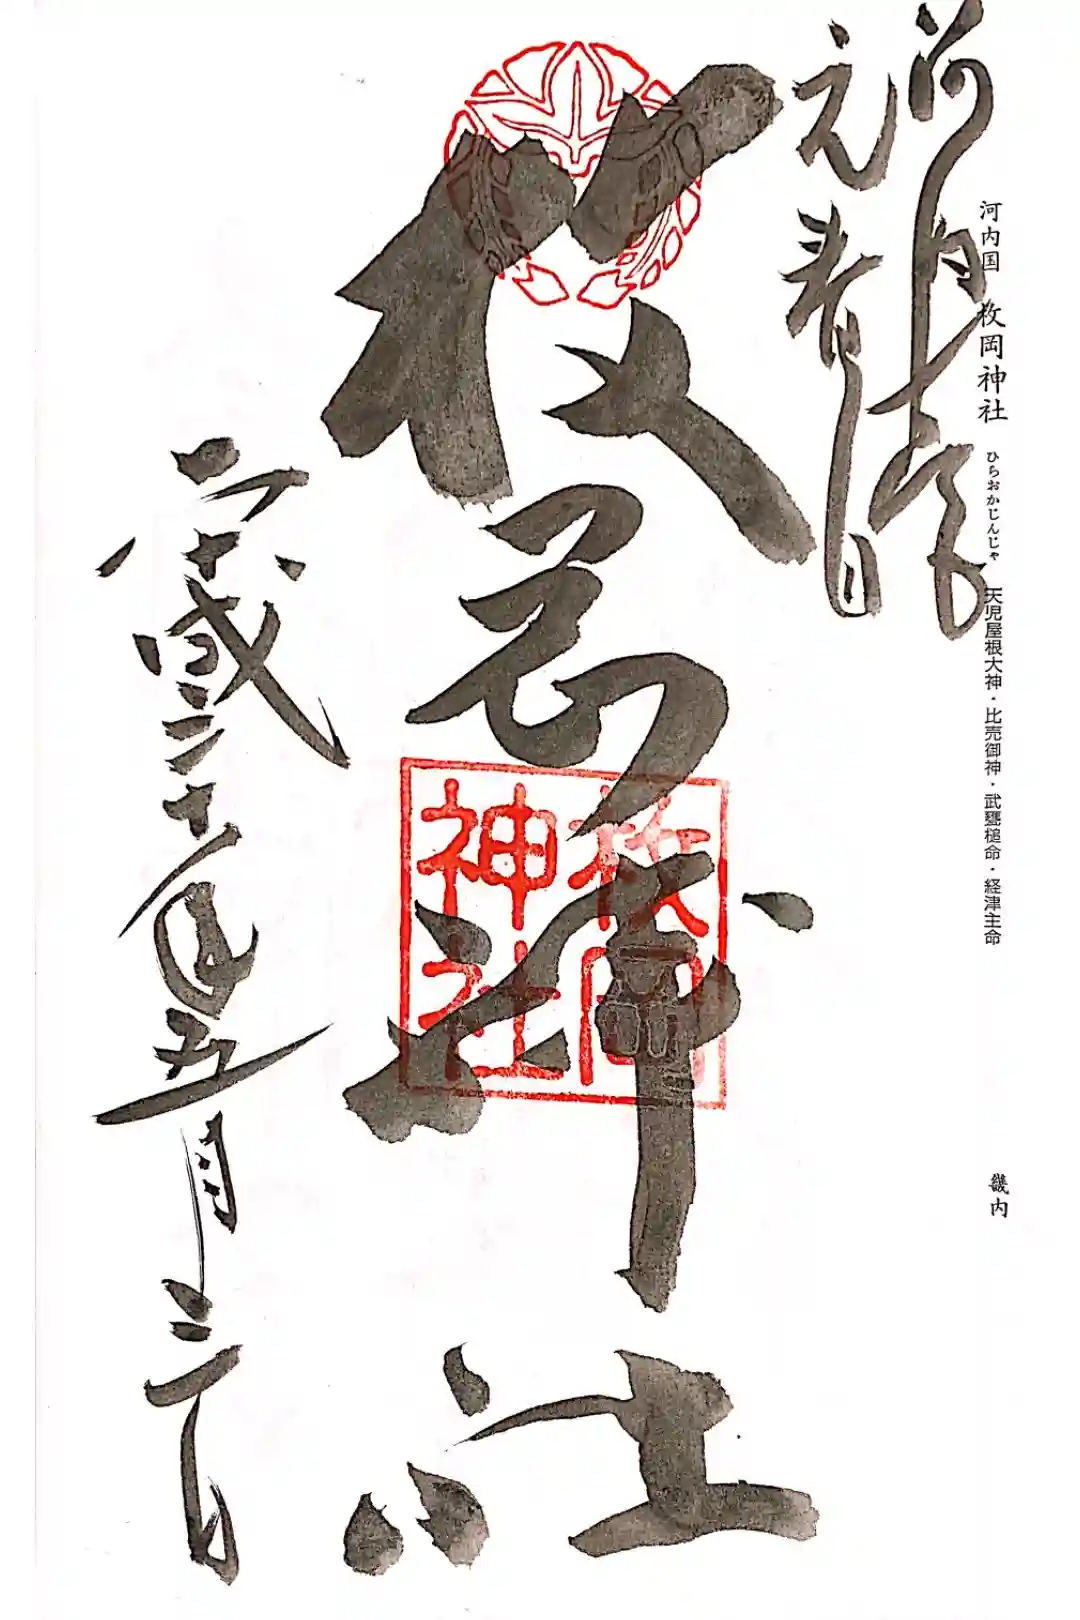 河内国 枚岡神社 ひらおかじんじゃ 天児屋根大神・比売御神・武甕槌命・経津主命 畿内
河内
元春日
枚岡神社
枚岡
神社
平成三十年五月三日